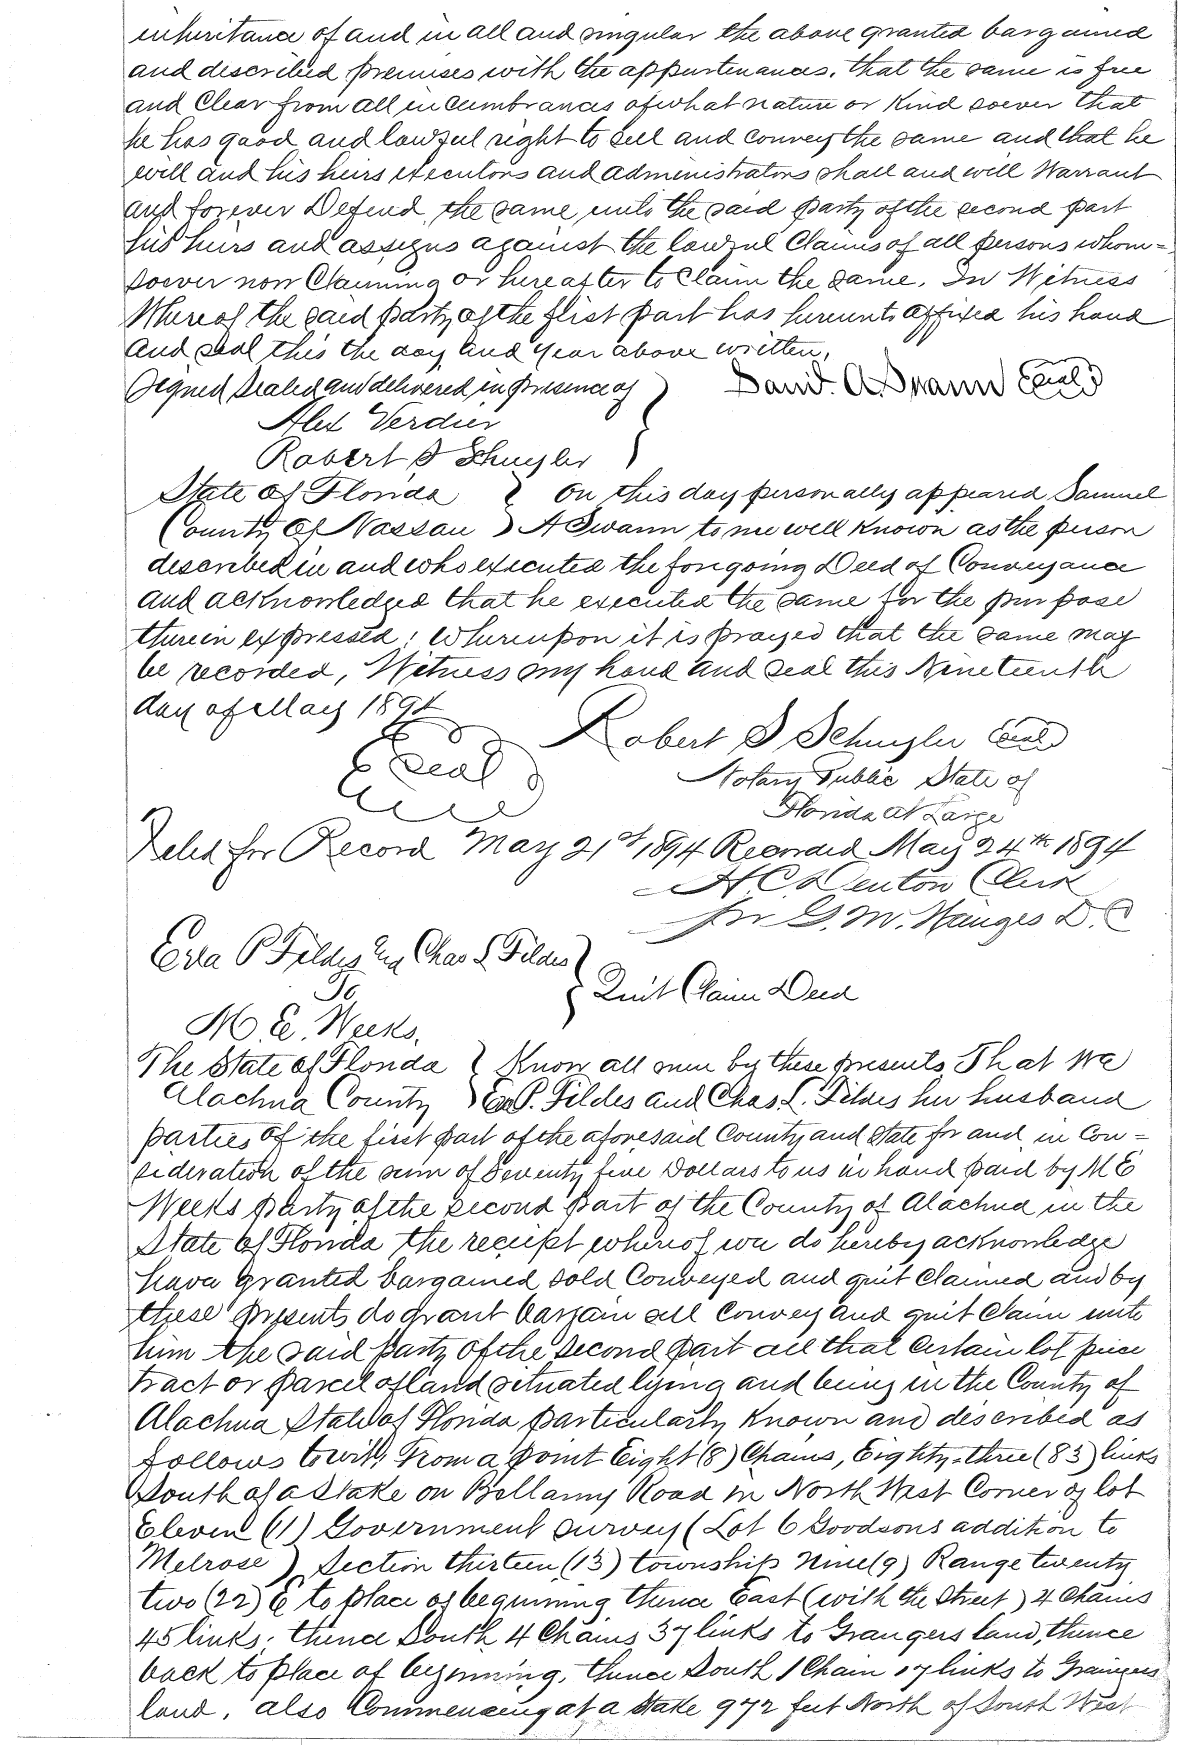 inheritance of and in all and singular the above granted bargained
and described premises with the appurtenances, that the same is free
and Clear from all incumbrances of what nature or Kind soever that
he has good and lawful right to sell and convey the same and that he
will and his heirs executors and administrators shall and will Warrant
and forever Defend the same unto the said party of the second part
his heirs and assigns against the lawful Claims of all persons whom=
soever now Claiming or hereafter to Claim the same. In Witness
Whereof the said party of the first part has hereunto affixed his hand
and seal this the day and year above written.
Signed Sealed and delivered in presence of } Saml. A. Swann (Seal)
Alex Verdier
Robert S Schuyler
State of Florida } On this day personally appeared Samuel
County of Nassau } A Swann to me well Known as the person
described in and who executed the foregoing Deed of Conveyance
and acknowledged that he executed the same for the purpose
therein expressed; whereupon it is prayed that the same may
be recorded, Witness my hand and seal this Nineteenth
day of May 1894
Robert S Schuyler (Seal)
(Seal)
Notary Public State of
Florida at Large
Filed for Record May 21st 1894 Recorded May 24th 1894
H. C. Denton Clerk
per G. M. D. C
P Fildes and Chas L Fildes }
To } Quit Claim Deed
M. E. Weeks.
The State of Florida } Know all men by these presents, That We
Alachua County } P. Fildes and Chas. L. Fildes her husband
parties of the first part of the aforesaid County and State for and in Con=
sideration of the sum of Seventy five Dollars to us in hand paid by M E
Weeks party of the second part of the County of Alachua in the
State of Florida the receipt whereof we do hereby acknowledge
have granted bargained sold Conveyed and quit Claimed and by
these presents do grant bargain sell Convey and quit Claim unto
him the said party of the second part all that Certain lot piece
tract or parcel of land situated lying and being in the County of
Alachua State of Florida particularly Known and described as
follows towit, From a point Eight (8) Chains, Eighty-three (83) links
South of a Stake on Bellamy Road in North West Corner of lot
Eleven (11) Government survey (Lot 6 Goodsons addition to
Melrose), Section thirteen (13) township Nine (9) Range twenty
two (22) E to place of beginning thence East (with the Street) 4 Chains
45 links; thence South 4 Chains 37 links to Grangers land, thence
back to place of beginning, thence South 1 Chain 17 links to Grangers
land, also Commencing at a Stake 972 feet North of South West